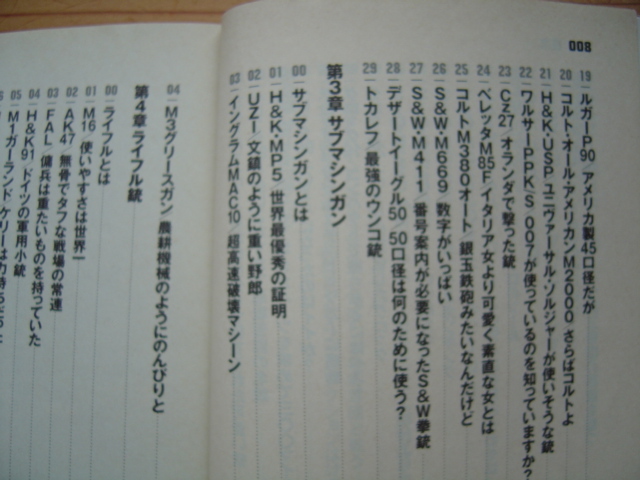 008
19 ルガーP90／アメリカ製45口径だが
20 コルト・オール・アメリカンM2000 さらばコルトよ
21 H&K・USP ユニヴァーサル・ソルジャーが使いそうな銃
22 ワルサーPPK／S 007が使っているのを知っていますか?
23 Cz27／オランダで撃った銃
24 ベレッタM85F／イタリア女より可愛く素直な女とは
25 コルトM380オート 銀玉鉄砲みたいなんだけど
26 S&W・M669 数字がいっぱい
27 S&W・M411／番号案内が必要になったS&W拳銃
28 デザートイーグル50／50口径は何のために使う?
29 トカレフ／最強のウンコ銃
第3章 サブマシンガン
00 サブマシンガンとは
01 H&K・MP5／世界最優秀の証明
02 UZI／文鎮のように重い野郎
03 イングラムMAC10／超高速破壊マシーン
04 M3グリースガン／農耕機械のようにのんびりと
第4章 ライフル銃
00 ライフルとは
01 M16／使いやすさは世界一
02 AK47 無骨でタフな戦場の常連
03 FAL／傭兵は重たいものを持っていた
04 H&K91／ドイツの軍用小銃
05 M1ガーランド／ケリーは力持ちだった